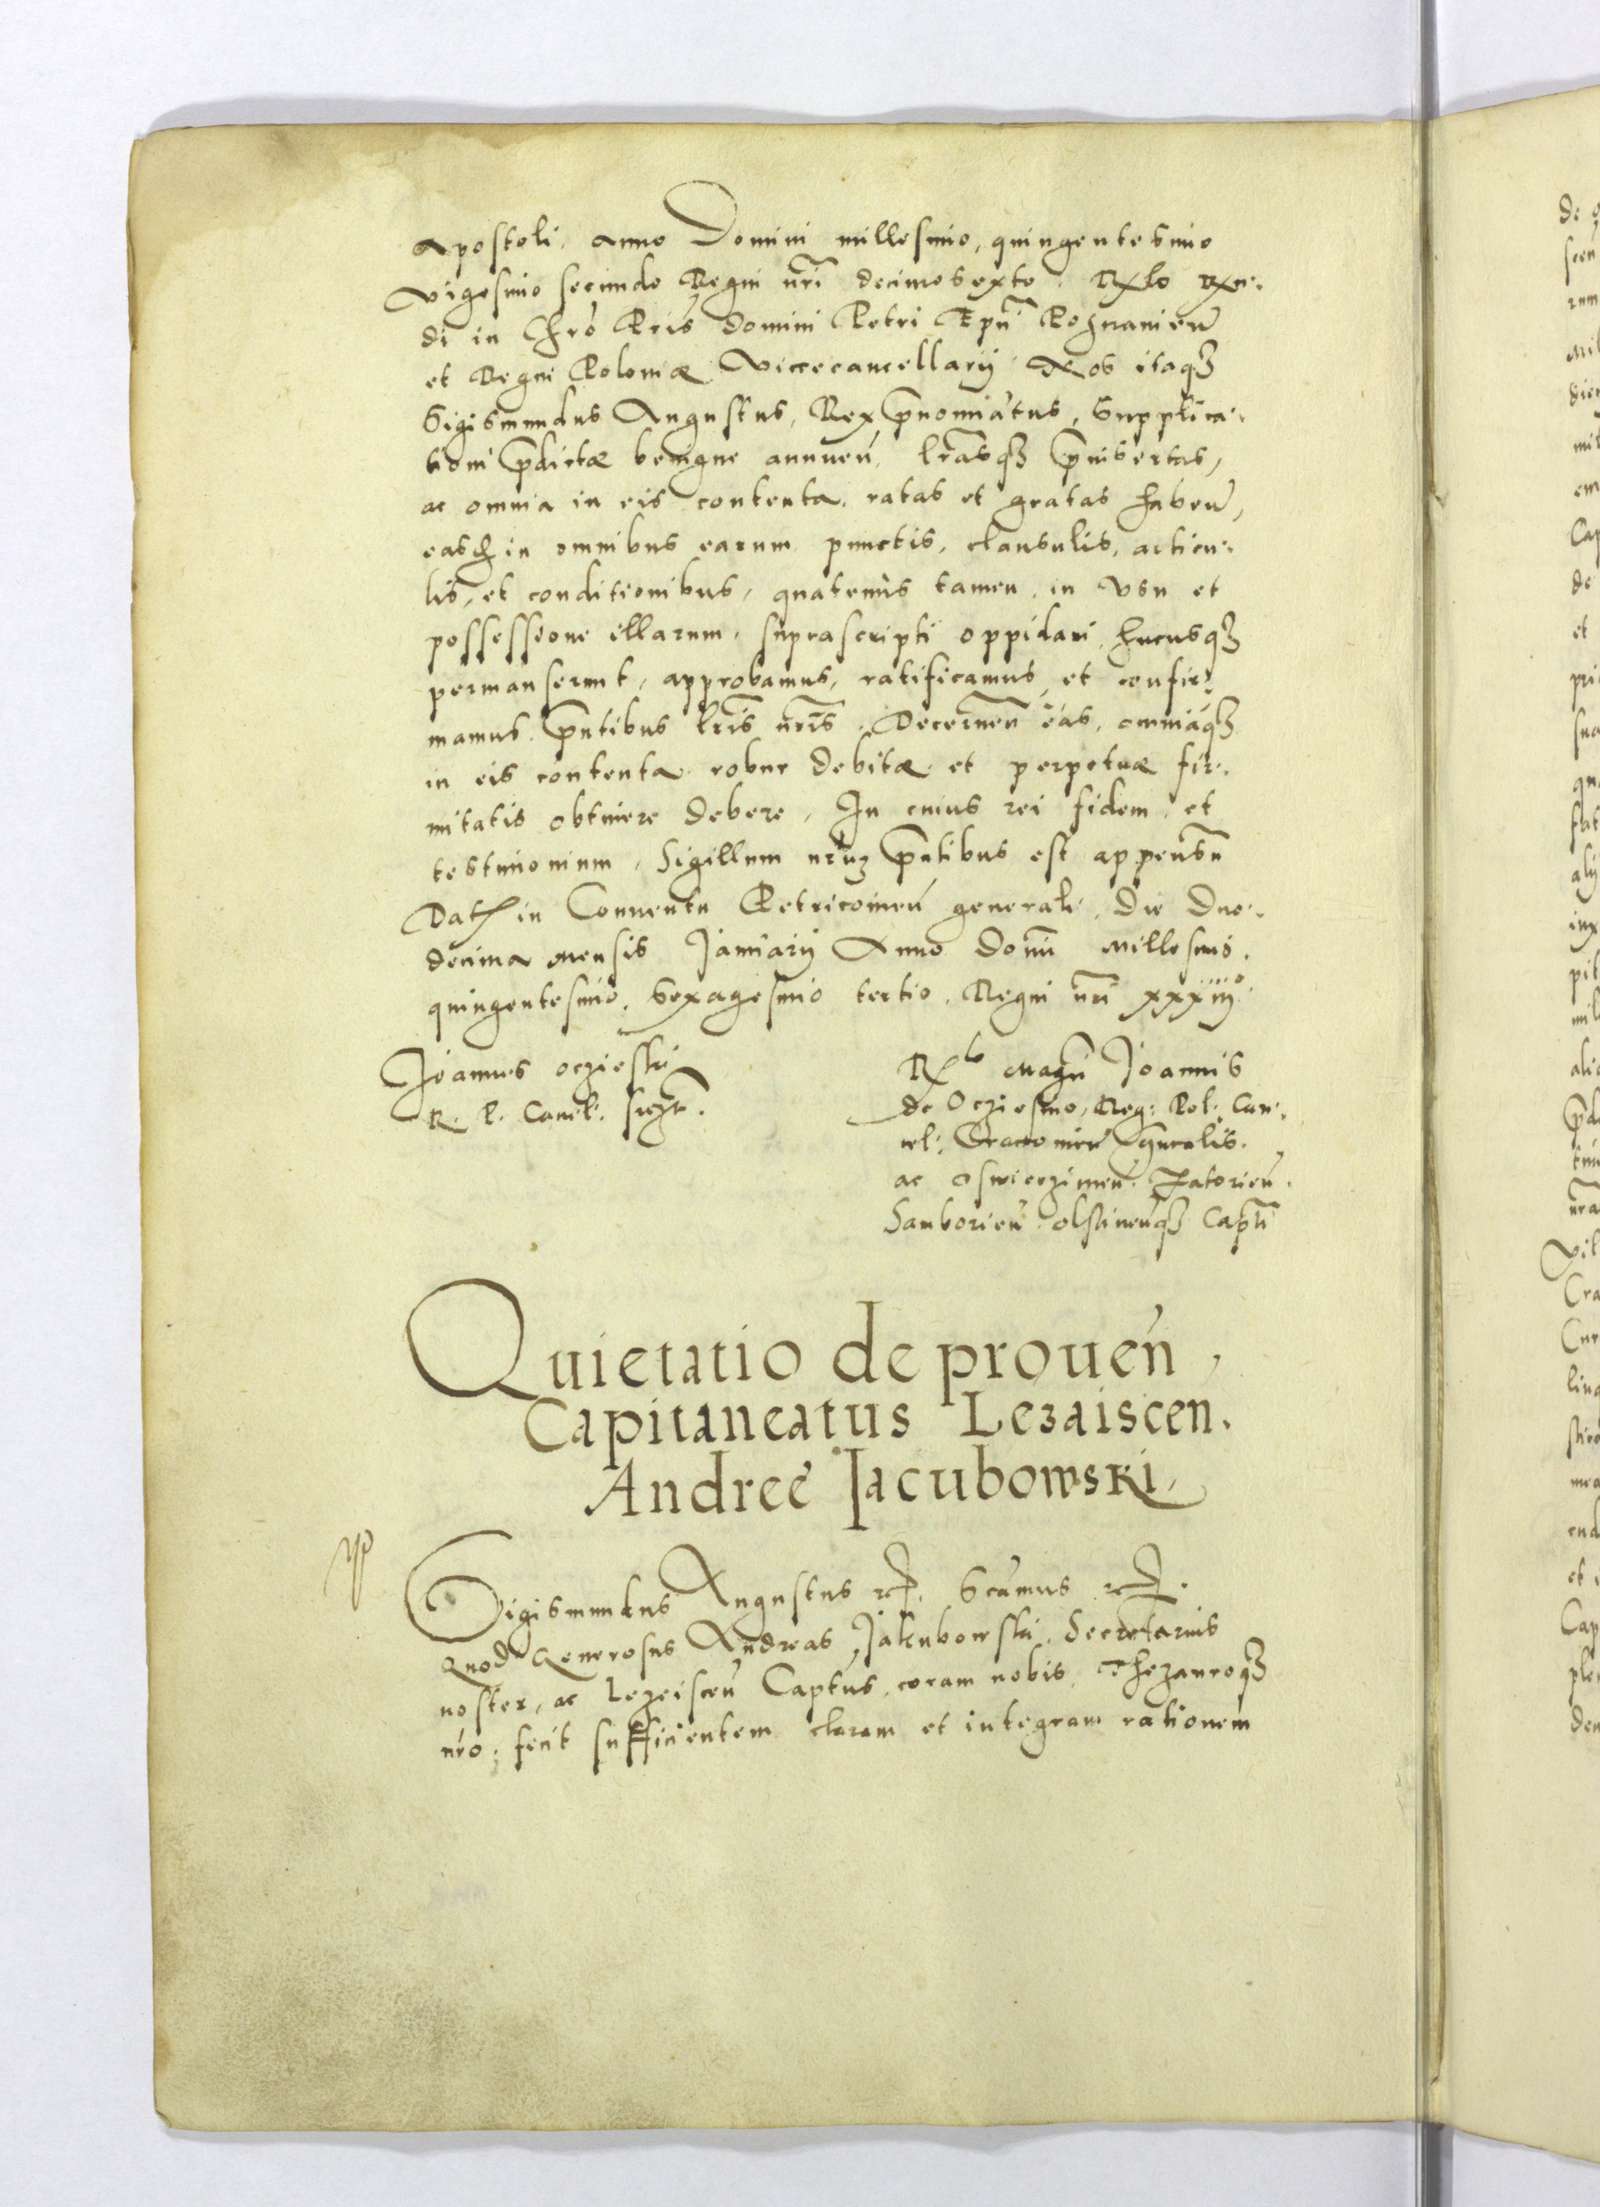 Apostoli. Anno Domini millesimo, quingentesimo
vigesimo secundo Regni nr̃i decimosexto. Rx̃lo Rxn-
di in Chro Pris Domini Petri Epũi Poznanien̄
et Regni Poloniæ Vicecancellarij. Nos itaqȝ
Sigismundus Augustus, Rex p̄nomiātus, Supplica-
tioni p̄dictæ benigne annuen̄, lr̃asqȝ p̄insertas,
ac omnia in eis contenta. ratas et gratas haben̄,
easqȝ in omnibus earum punctis, clausulis, articu-
lis, et conditionibus, quatenus tamen, in vsu et
possessione illarum, suprascripti oppidani hucusqȝ
permanserunt, approbamus, ratificamus, et confir-
mamus p̄ntibus lr̃is nr̃is. Decernen̄ eas, omniaqȝ
in eis contenta robur debitæ et perpetuæ fir-
mitatis obtinere debere. In cuius rei fidem et
testimonium, Sigillum nr̃uȝ p̄ntibus est appensũ
Dat̃ in Conuentu Petricouien̄ generali, die duo-
decima mensis Januarij Anno Doni Millesimo.
quingentesimo, sexagesimo tertio. Regni nr̃i xxxiiij°
Joannes Oczieski
R. P. Cancel. sszt.
Rx̃lo Magñi Joannis
de Oczieszino, Reg: Pol: Can-
cel: Cracouien̄ Gn̄ralis.
ac Oswieczimen̄. Zatorien̄.
Samborien̄. Olstinen̄qȝ Captĩ
Quietatio de prouen̄,
Capitaneatus Lezaiscen.
Andreę Jacubowski
Sigismundus Augustus etc. Scãmus etc.
Quod Generosus Andreas Jakubowski, Secretarius
noster, ac Lezeiscen̄ Captũs, coram nobis, Thezauroqȝ
nr̃o, fecit sufficientem claram et integram rationem